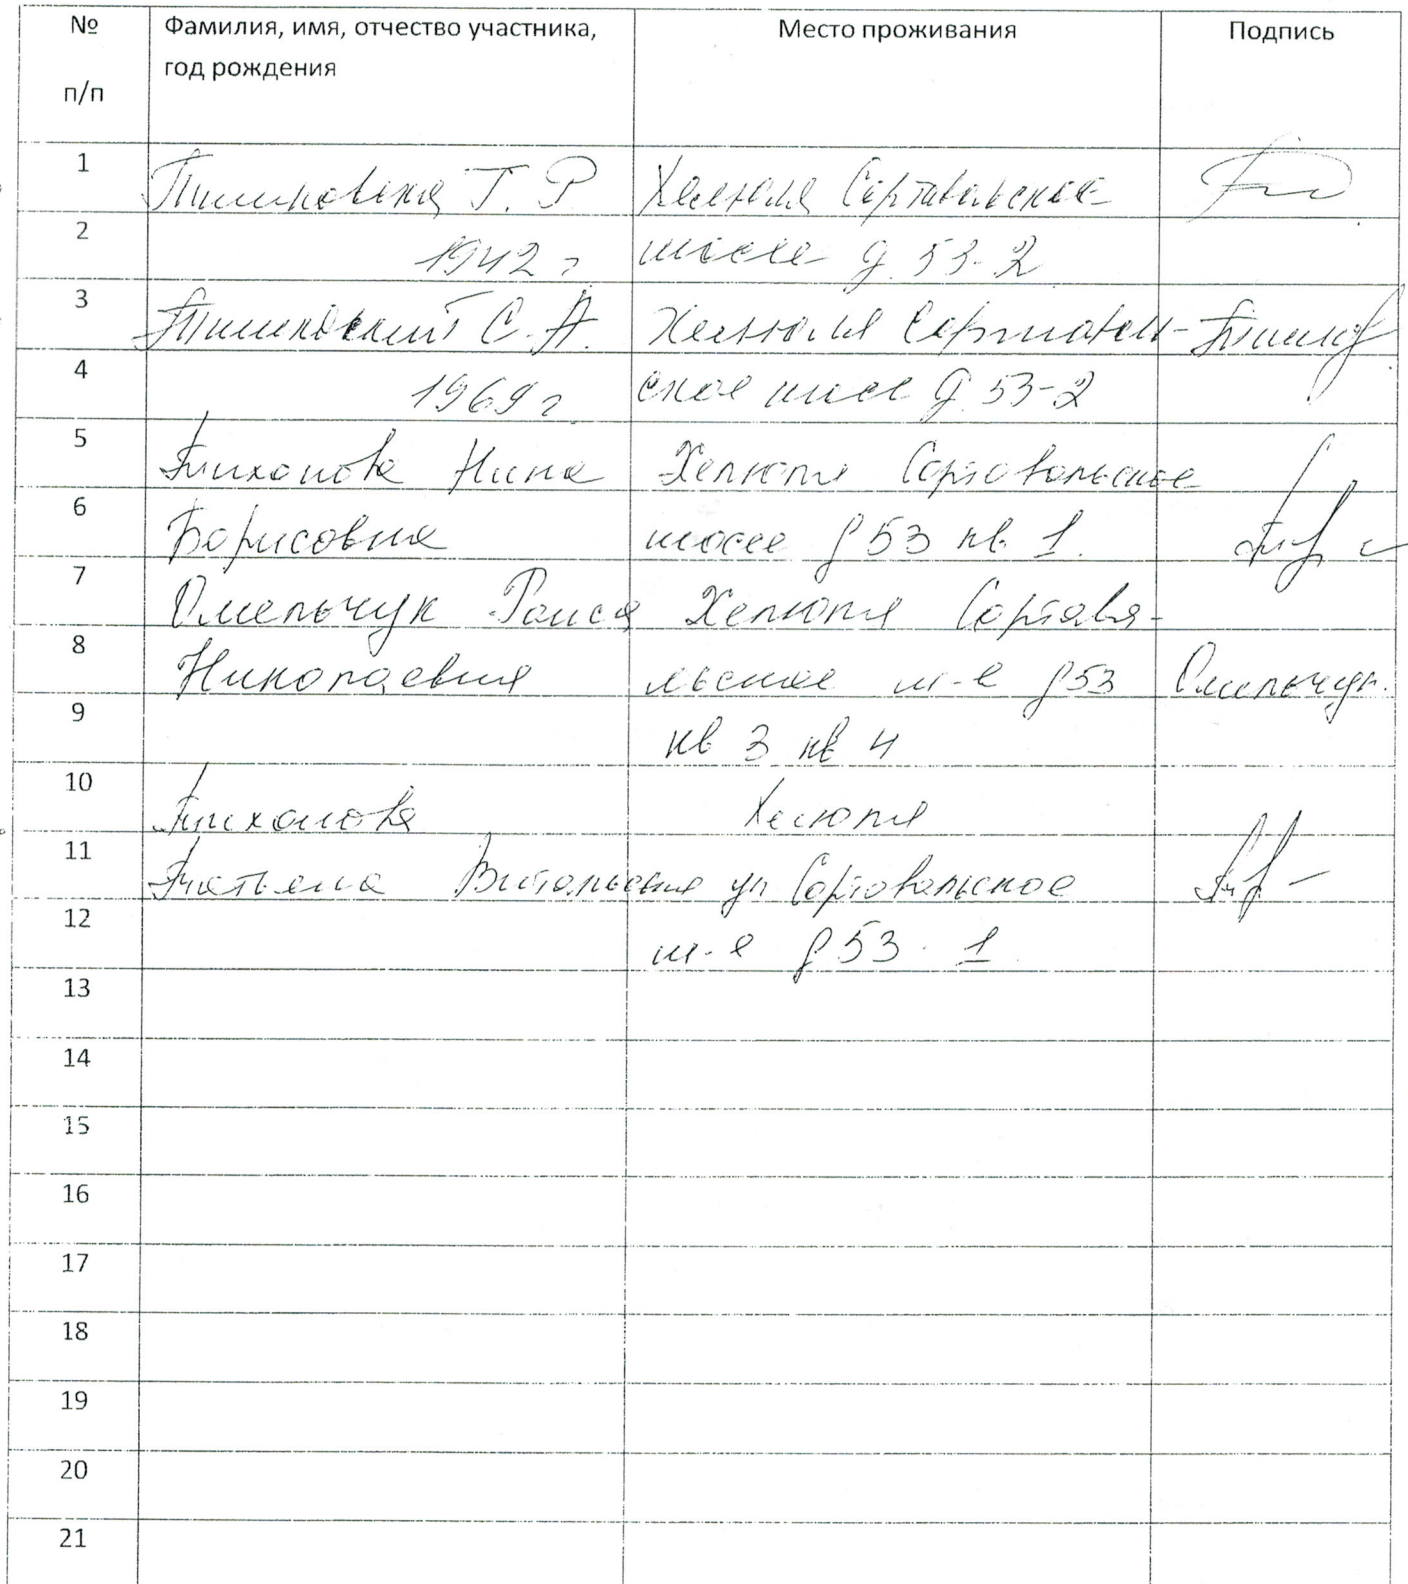 № Фамилия, имя, отчество участника, Место проживания Подпись
п/п год рождения
1 Тишковская Т. Р Хелюля Сортавальское
2 1942 г шоссе д. 53-2
3 Тишковский С. А. Хелюля Сортаваль-
4 1969 г ское шосе д. 53-2
5 Тихонова Нина Хелюля Сортовальское
6 Борисовна шоссе д 53 кв. 1.
7 Омельчук Раиса Хелюля Сортава-
8 Николаевна льское ш-е д 53 Омельчук.
9 кв 3 кв 4
10 Тихонова Хелюля
11 Татьяна Витальевна ул Сортовальское
12 ш-е д 53 - 1
13
14
15
16
17
18
19
20
21